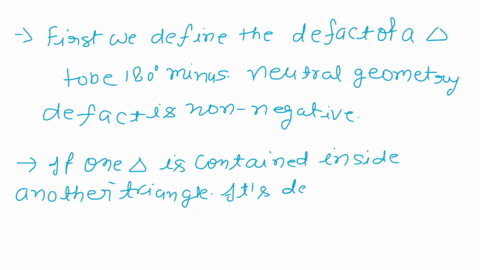 → First we define the defact of a △
to be 180° minus neutral geometry
defact is non-negative.
→ If one △ is contained inside
another triangle. It's de